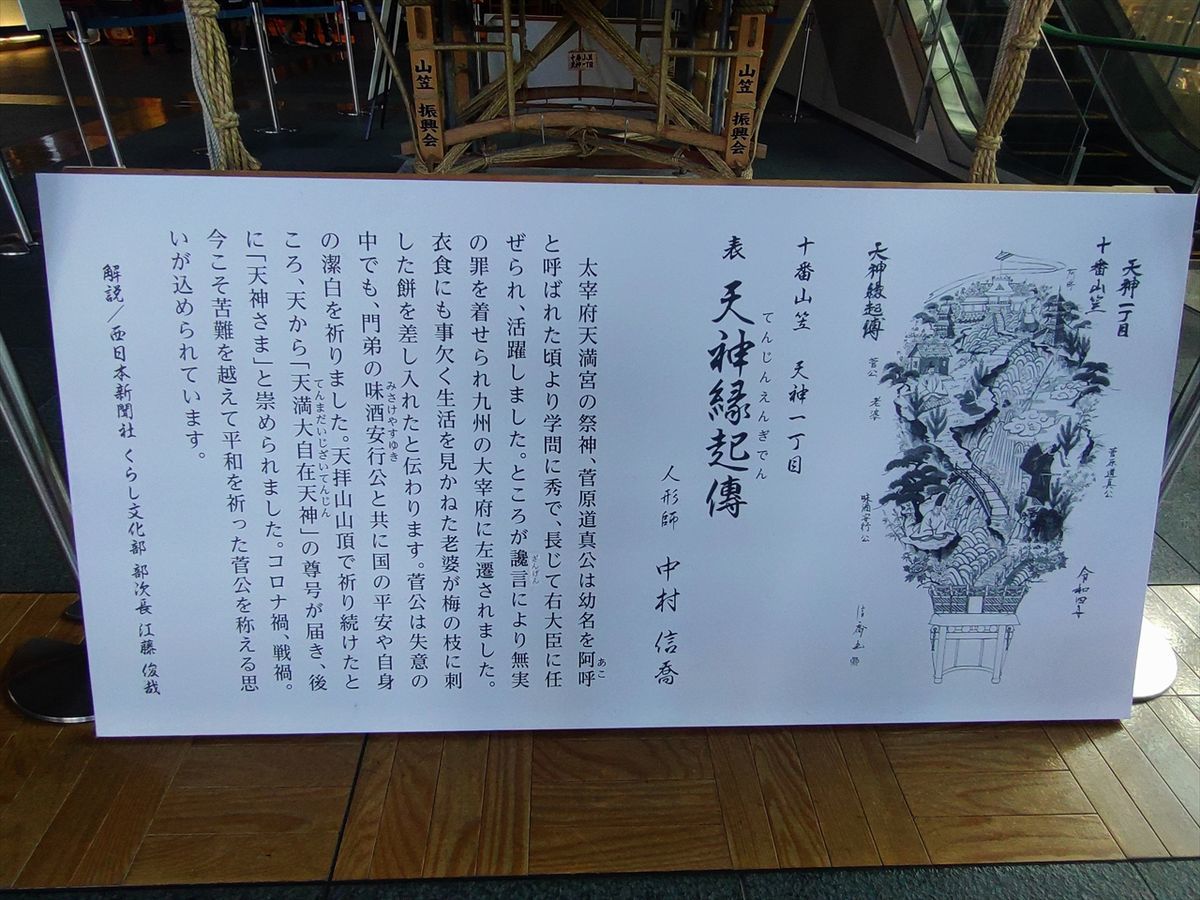 山笠 振興会
山笠 振興会
十番山笠
天神一丁目
天神一丁目
十番山笠
菅原道真公
令和四年
天神縁起傳
菅公
老婆
味酒安行公
十番山笠 天神一丁目
表 天神縁起傳
てんじんえんぎでん
人形師 中村 信喬
太宰府天満宮の祭神、菅原道真公は幼名を阿呼
あこ
と呼ばれた頃より学問に秀で、長じて右大臣に任
ぜられ、活躍しました。ところが讒言により無実
ざんげん
の罪を着せられ九州の大宰府に左遷されました。
衣食にも事欠く生活を見かねた老婆が梅の枝に刺
した餅を差し入れたと伝わります。菅公は失意の
中でも、門弟の味酒安行公と共に国の平安や自身
みさけやすゆき
の潔白を祈りました。天拝山山頂で祈り続けたと
ころ、天から「天満大自在天神」の尊号が届き、後
てんまだいじざいてんじん
に「天神さま」と崇められました。コロナ禍、戦禍。
今こそ苦難を越えて平和を祈った菅公を称える思
いが込められています。
解説／西日本新聞社 くらし文化部 部次長 江藤 俊哉